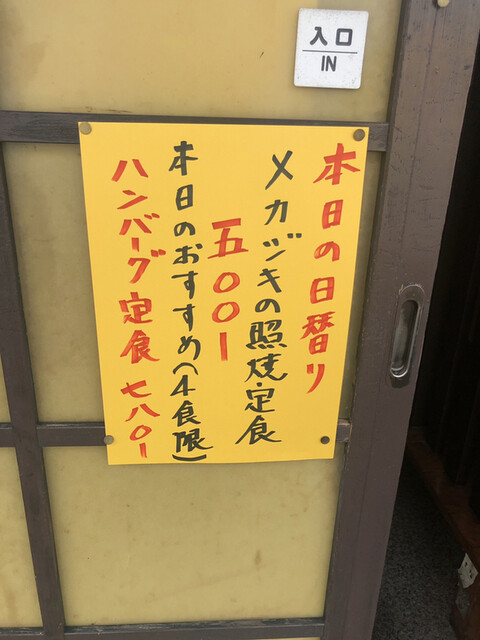 入口
IN
本日の日替り
メカジキの照焼定食
五〇〇ー
本日のおすすめ(4食限)
ハンバーグ定食 七八〇ー